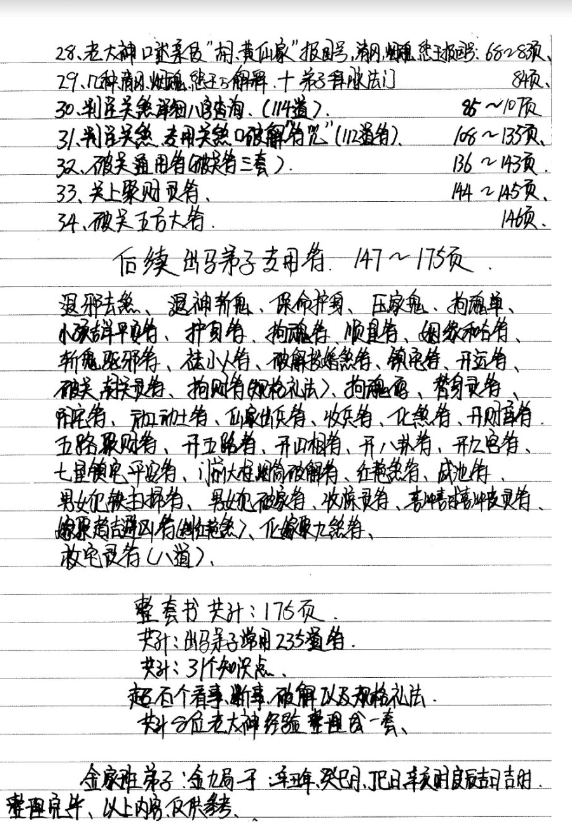 28、老大神口述亲民“胡、黄仙家”报国号,清风,烟魂,悲王报号: 68~83页、
29、几种清风,烟魂,悲王与解释.十弟子自测法门 84页、
30、判官关煞详细八字查询.(114道)、 85~107页
31、判官关煞、专用关煞口破解“符咒”(112道符)、 108~135页、
32、破关通用符(破关符三套)、 136~143页、
33、关上聚财灵符、 144~145页、
34、破关五方大符. 146页、
后续 出马弟子专用符. 147~175页.
退邪去煞、退神斩鬼、保命护身、压家鬼、拘魂单、
小孩吉祥平安符、护身符、拘魂符、顺星符、姻缘和合符、
斩鬼驱邪符、祛小人符、破解披麻煞符、镇宅符、开运符、
破关灵符、拘财符(规格礼法)、拘魂码、替身灵符、
符、动土符、仙家出兵符、收兵符、化煞符、开财库符.
五路聚财符、开五路符、开四相符、开八卦符、开九宫符、
七星镇宅平安符、门前大烟筒破解符、红艳煞符、咸池符、
男女犯铁扫帚符、男女犯破家符、收惊灵符、灵符、
嫁娶趋吉避凶符(红艳煞)、化嫁娶九煞符、
收宅灵符(八道)、
整套书共计:175页.
共计:出马弟子常用235道符.
共计:31个知识点、
超百个看事、断事、破解以及规格礼法.
共计8位老大神经验整理成一套、
金家班弟子:金九局-于:辛丑年、癸巳月、丁巳日、时良辰吉日吉时.
整理完毕、以上内容,仅供参考、